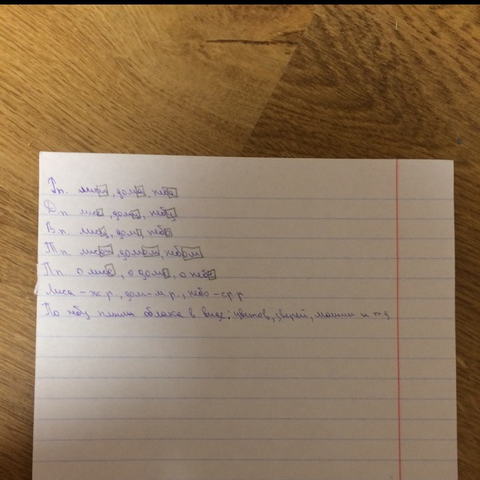 Рп. лисы, дома, неба
Дп лисе, дому, небу
Вп. лису, дом, небо
Тп лисой, домом, небом
Пп. о лисе, о доме, о небе
Лиса - ж.р., дом - м.р., небо - ср.р
По небу плыли облака в виде: цветов, зверей, машин и т д